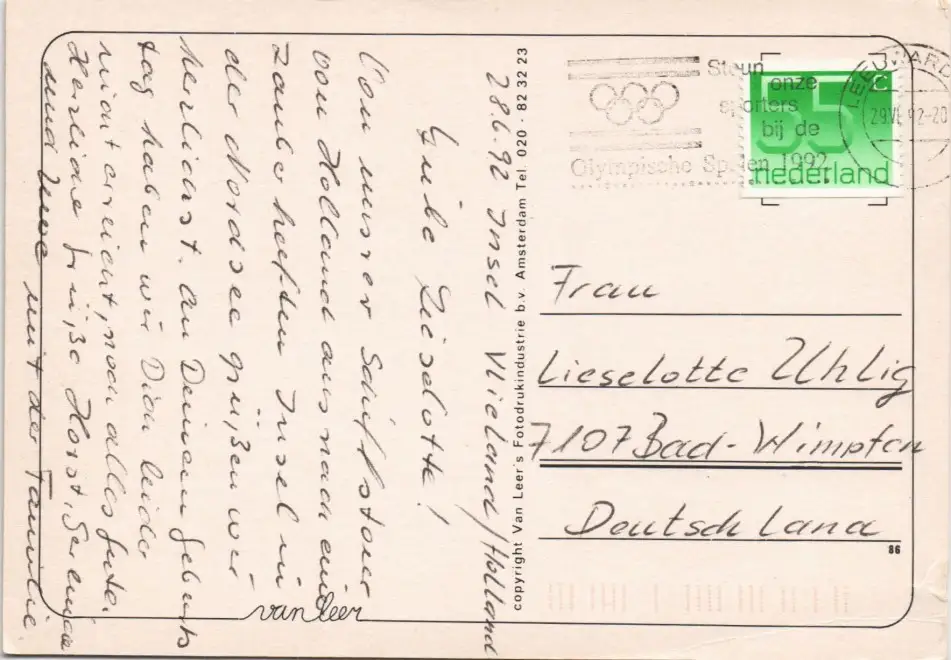 28.6.92 Insel Vlieland/Holland
Liebe Lieselotte!
Von unsrer Schiffstour
von Holland aus nach einer
zauberhaften Insel in
der Nordsee grüßen wir
herzlichst. An Deinem Geburts
tag haben wir Dich leider
nicht erreicht, noch alles Gute.
Herzliche Grüße Horst,
und Uwe mit der Familie.
copyright Van Leer's Fotodrukindustrie b.v. Amsterdam Tel. 020 - 82 32 23
van Leer
Steun
onze
sporters
bij de
Olympische Spelen 1992
55 c
nederland
LEEUWARD
29.VI.92-20
Frau
Lieselotte Uhlig
7107 Bad-Wimpfen
Deutschland
86